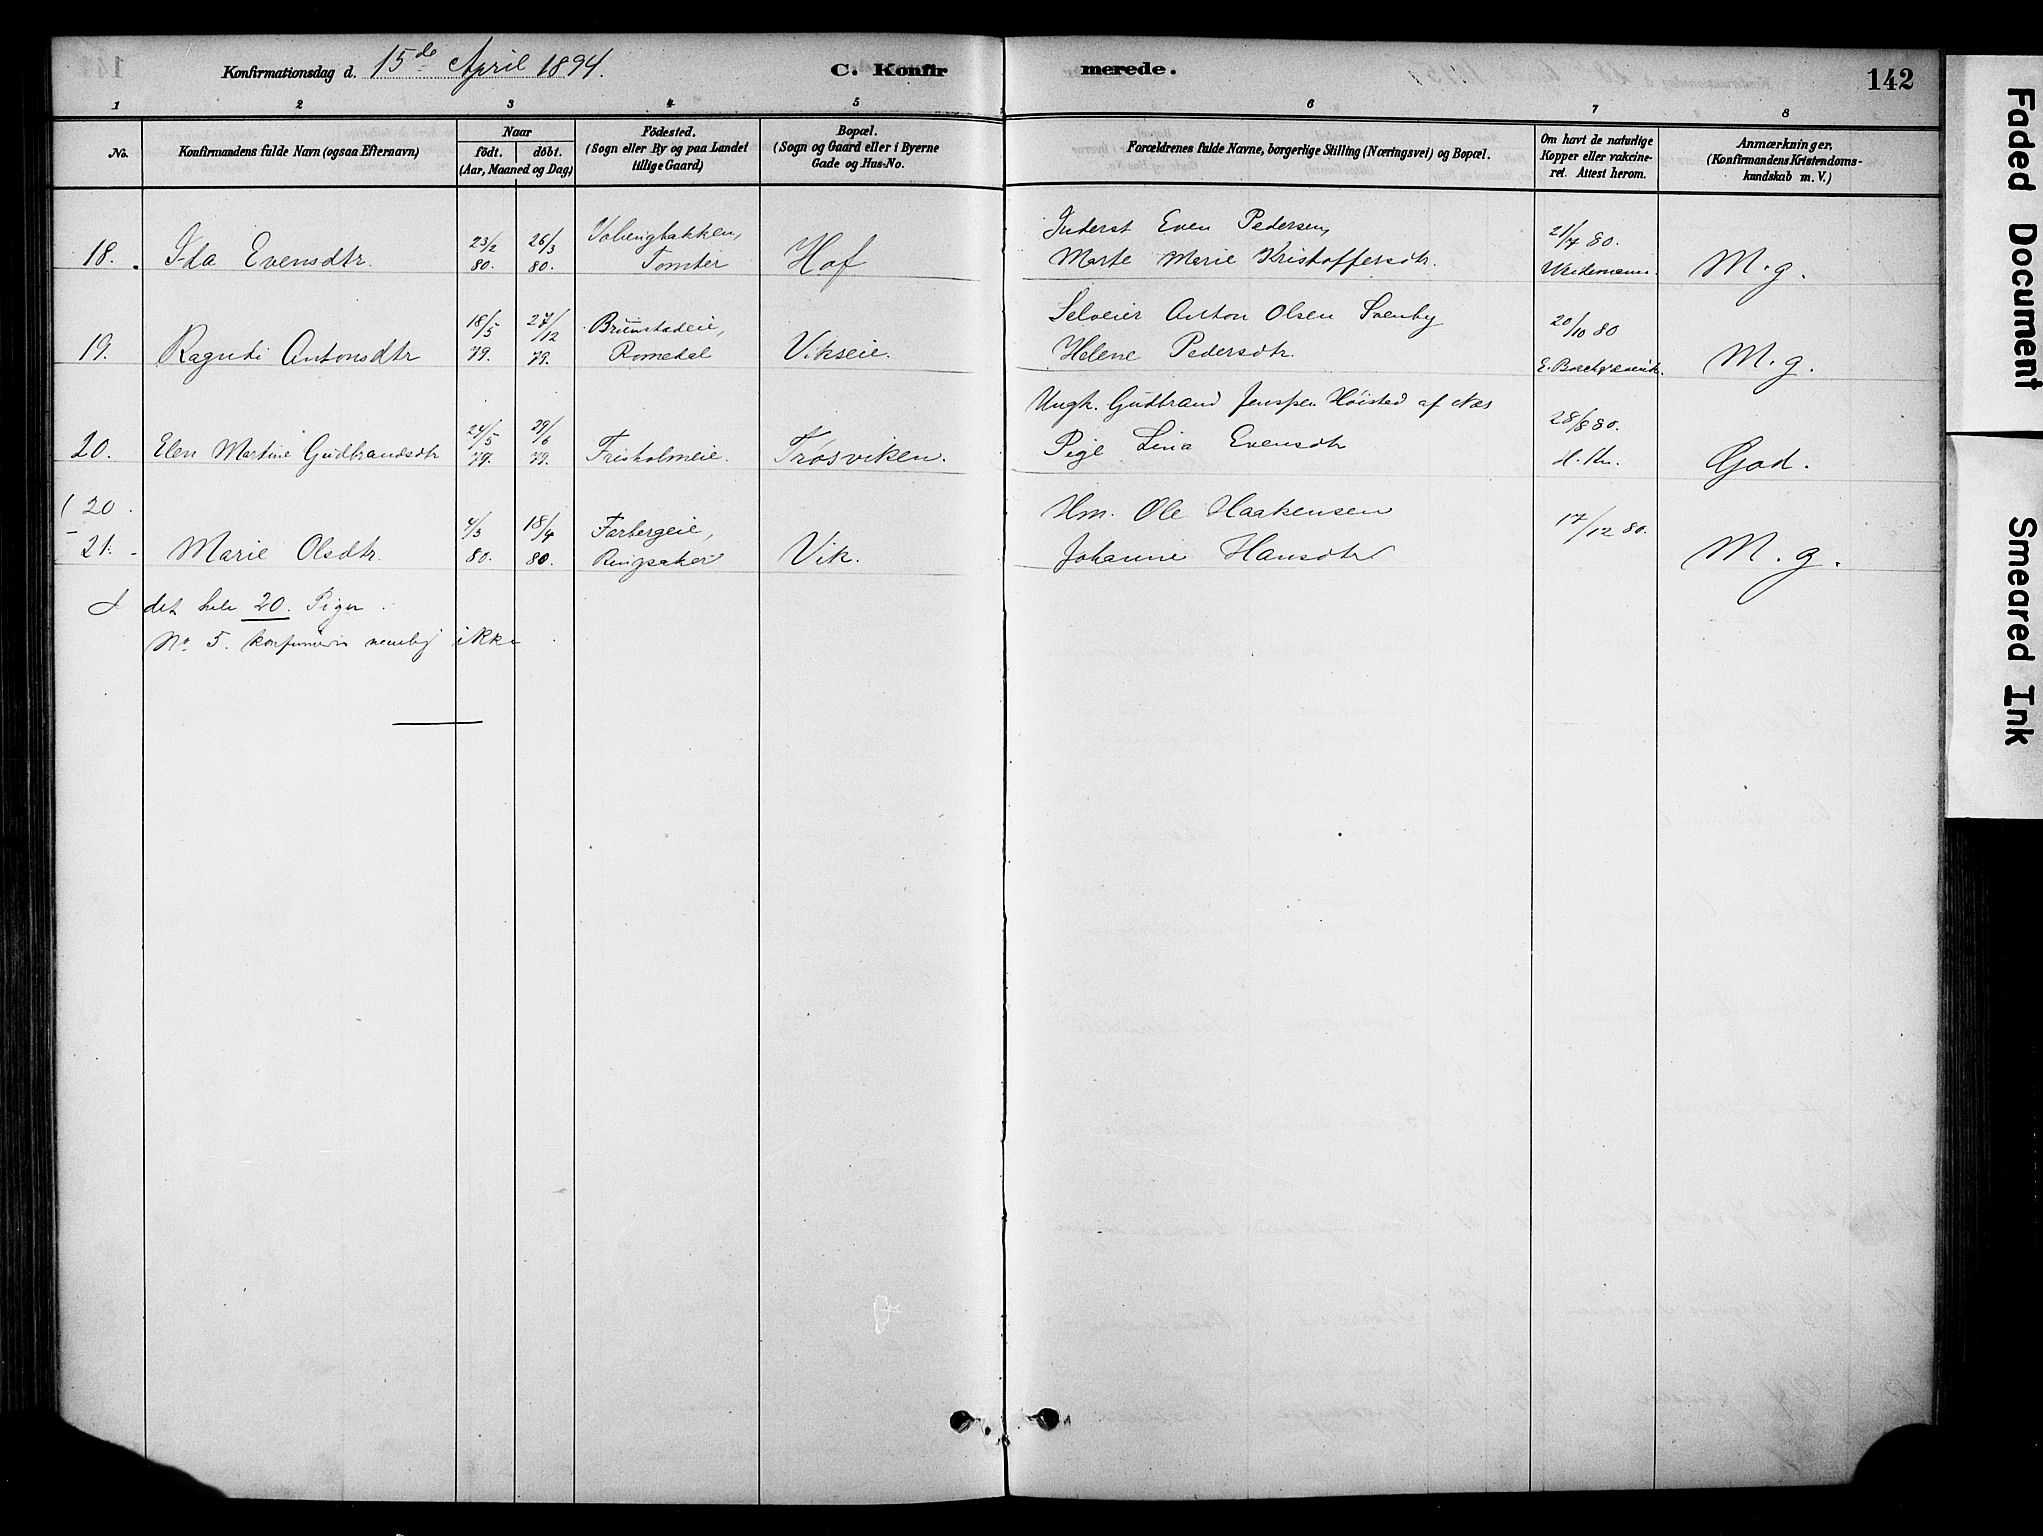 Konfirmationsdag d. 15de April 1894.
C. Konfirmerede.
142
1 2 3 4 5 6 7 8
No.
Konfirmandens fulde Navn (ogsaa Efternavn)
Naar
födt. döbt.
(Aar, Maaned og Dag)
Födested.
(Sogn eller By og paa Landet
tillige Gaard)
Bopæl.
(Sogn og Gaard eller i Byerne
Gade og Hus-No.
Forældrenes fulde Navne, borgerlige Stilling (Næringsvei) og Bopæl.
Om havt de naturlige
Kopper eller vakcine-
ret. Attest herom.
Anmærkninger.
(Konfirmandens Kristendoms-
kundskab m. V.)
23/2 26/3 Inderst Even Pedersen, 21/7 80.
18. Ida Evensdtr. 80. 80. Tomter Hof Marte Marie Kristoffersdtr. M.g.
18/5 27/12 Brunstadeie, Selveier Anton Olsen 20/10 80
19. Ragndi Antonsdtr 79. 79. Romedal Vikseie. Helene Pedersdtr. M.g.
24/5 29/6 Ungk. Gudbrand Jenssen Höisted af Næs 28/8 80.
20. Elen Martine Gudbrandsdtr 79. 79. Frisholmeie. Trosviken. Pige Lina Evensdtr God.
(20.
4/3 18/4 Farbergeie, Hm. Ole Haakensen 17/12 80.
21. Marie Olsdtr. 80. 80. Ringsaker Vik. Johanne Hansdtr M.g.
I det hele 20. Piger.
No. 5. konfirmeres nemlig ikke
Faded Document
Smeared Ink